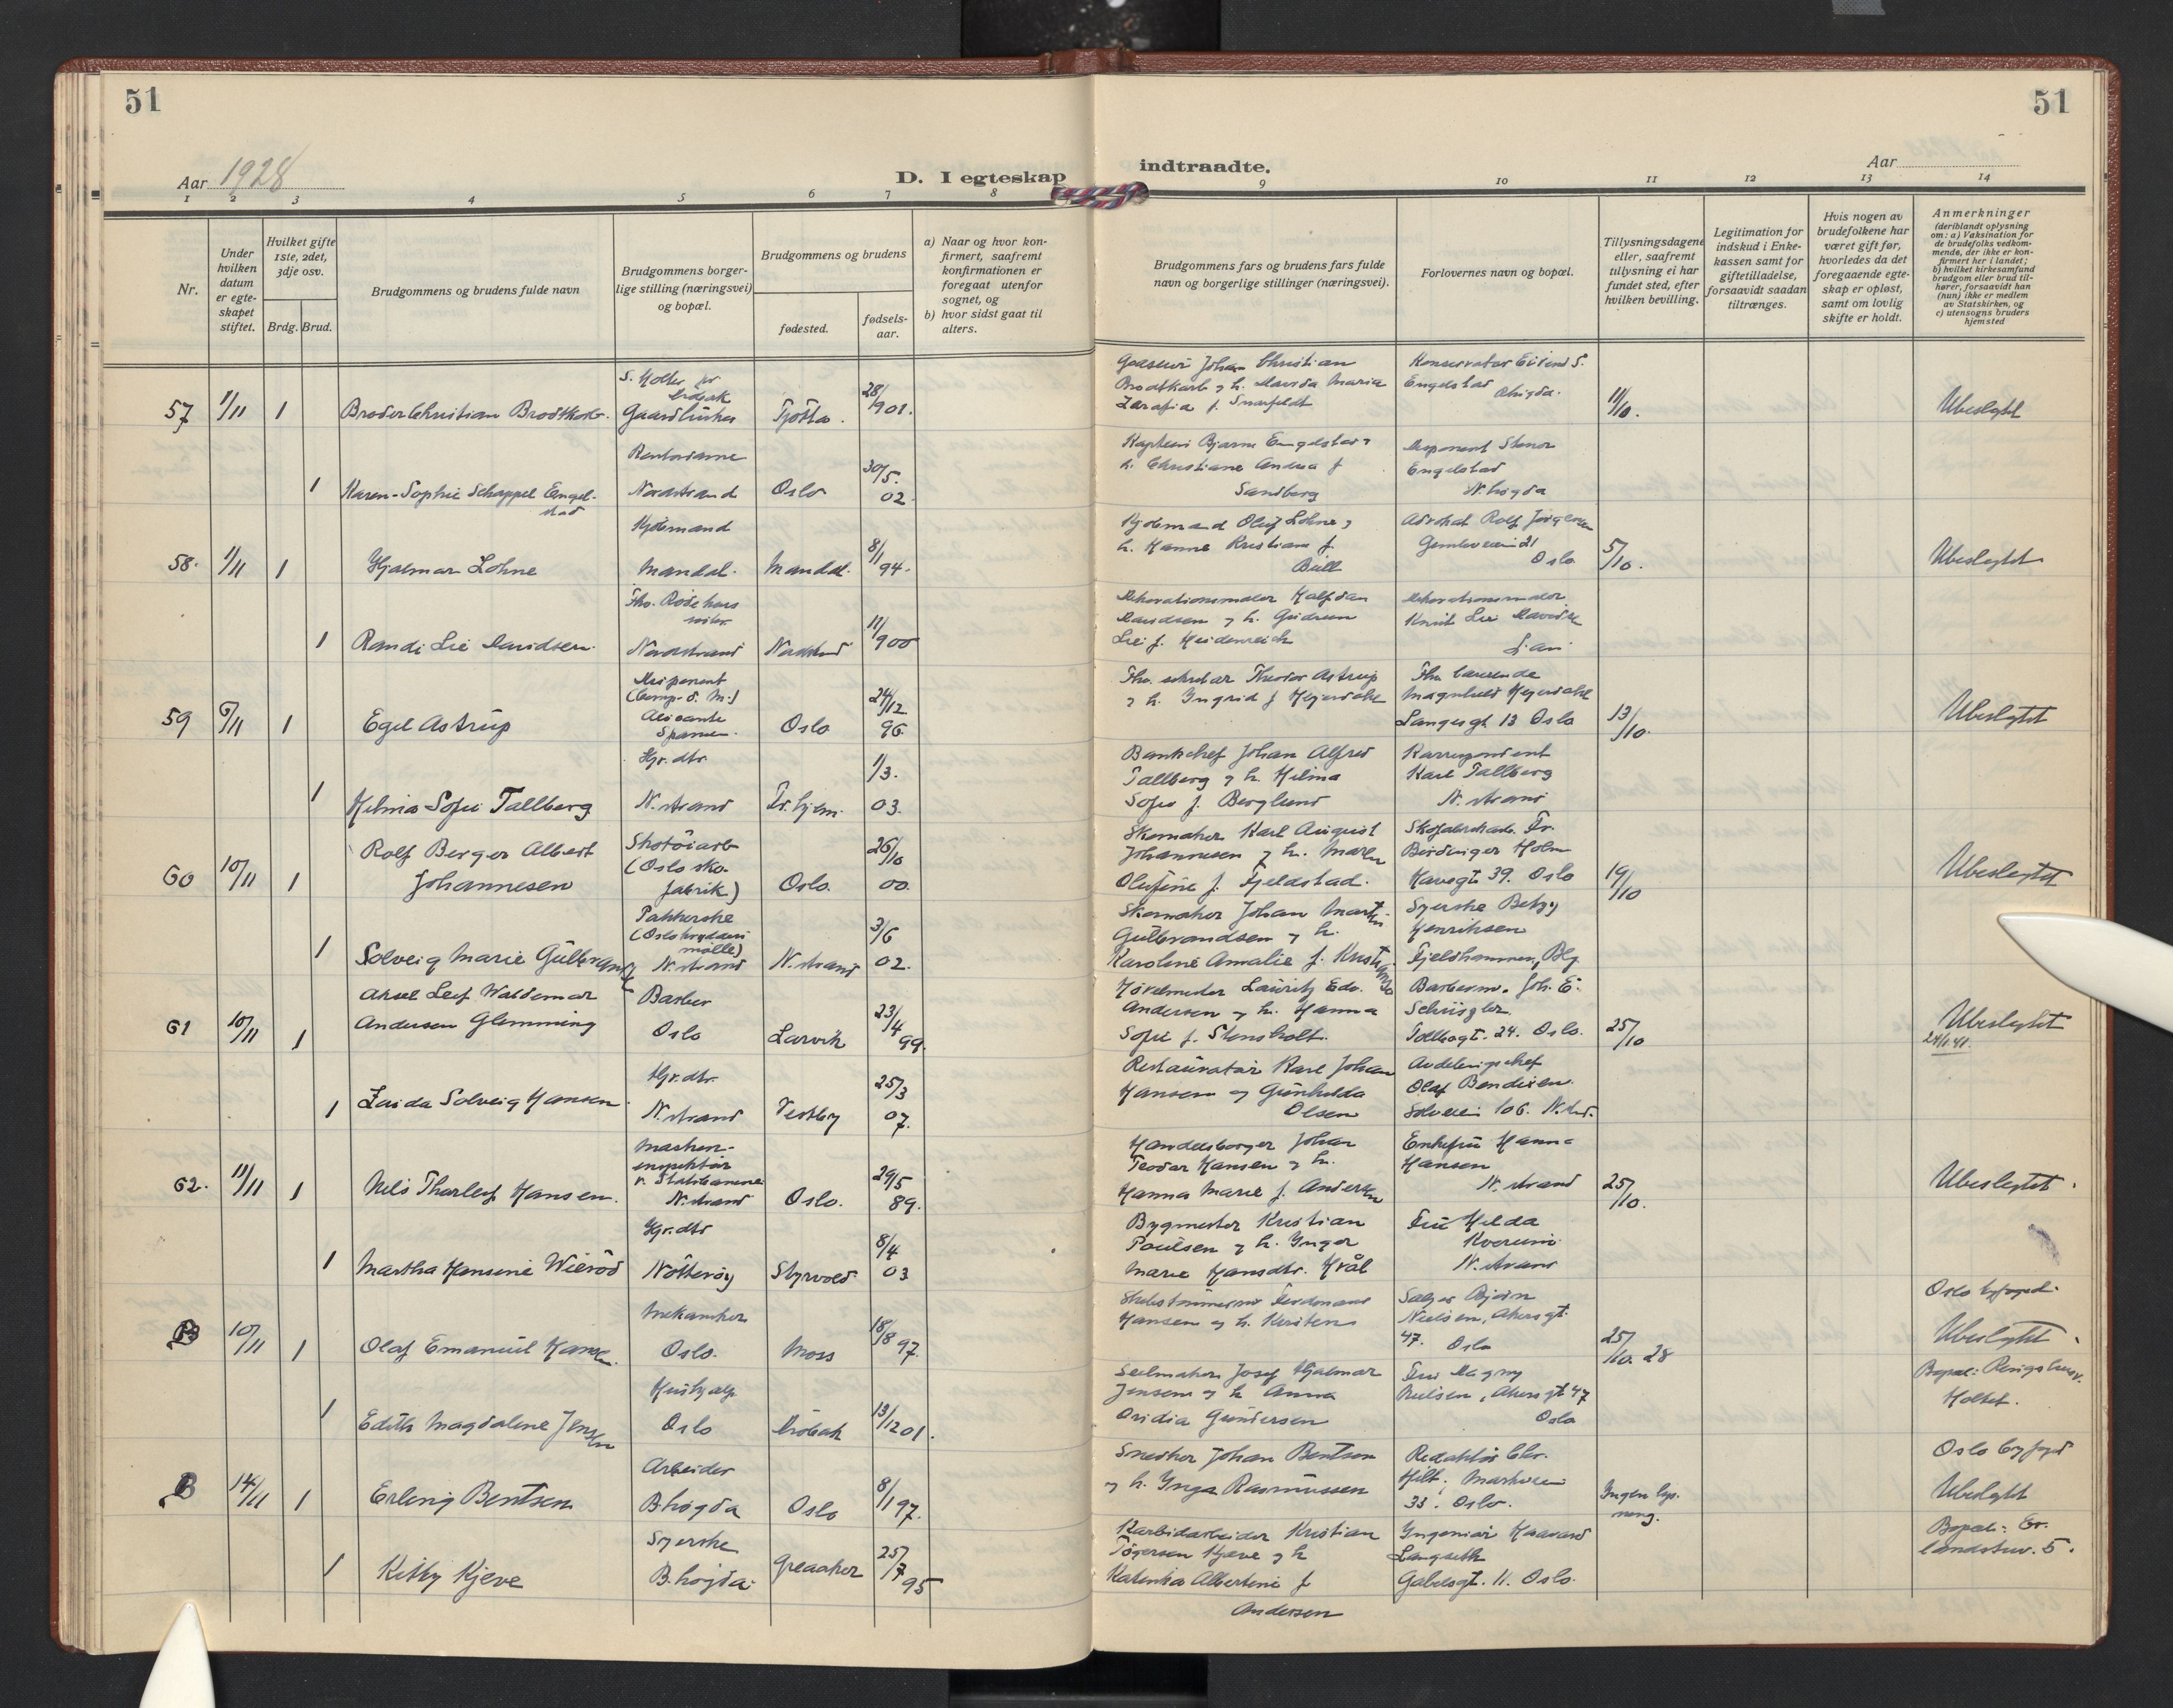 51
51
Aar 1928
D. I egteskap
indtraadte.
Aar
1 2 3 4 5 6 7 8
9 10 11 12 13 14
Nr.
Under hvilken datum er egte-skapet stiftet.
Hvilket gifte 1ste, 2det, 3dje osv.
Brdg. Brud.
Brudgommens og brudens fulde navn
Brudgommens borger-lige stilling (næringsvei) og bopæl.
Brudgommens og brudens
fødested.
fødsels-aar.
a) Naar og hvor kon-firmert, saafremt konfirmationen er foregaat utenfor sognet, og
b) hvor sidst gaat til alters.
Brudgommens fars og brudens fars fulde navn og borgerlige stillinger (næringsvei).
Forlovernes navn og bopæl.
Tillysningsdagene eller, saafremt tillysning ei har fundet sted, efter hvilken bevilling.
Legitimation for indskud i Enke-kassen samt for giftetilladelse, forsaavidt saadan tiltrænges.
Hvis nogen av brudefolkene har været gift før, hvorledes da det foregaaende egte-skap er opløst, samt om lovlig skifte er holdt.
Anmerkninger (deriblandt oplysning om: a) Vaksination for de brudefolks vedkom-mende, der ikke er kon-firmert her i landet; b) hvilket kirkesamfund brudgom eller brud til-hører, forsaavidt han (hun) ikke er medlem av Statskirken, og c) utensogns bruders hjemsted
57 1/11 1 Broder Christian Brodtkorb. Tjøtta. 28/1 901.
Johan Christian Brodtkorb
Engelstad
11/10.
Ubeslegtet
1 Karen-Sophie Schappel Engel-stad Nordstrand Oslo 30/5. 02
Kaptein Bjarne Engelstad
h. Christiane Andrea f. Sandberg
Disponent Stenor Engelstad
N. høgda
58. 1/11 1 Hjalmar Lohne Kjøbmand Mandal. Mandal. 8/11 94.
Kjøbmand Oluf Lohne
h. Hanne Kristiane f. Bull
Advokat Rolf Jørgensen
Oslo
5/10.
Ubeslegtet
1 Randi Lie Davidsen. Nordstrand Nordstrand 11/1 900
Dekorationsmaler Halfdan Davidsen og h. Gudrun Lie f. Heidenreich
Dekorationsmaler Knut Lie Davidsen
59 6/11 1 Egil Astrup Disponent Alicante Spanien. Oslo 24/12 96.
Theodor Astrup
og h. Ingrid f. Heyerdahl
Magnhild Heyerdahl
Langesgt 13 Oslo
13/10.
Ubeslegtet
1 Helmia Sofie Tallberg Hr. dtr. N. strand Fr. hjem. 1/3. 03.
Bankchef Johan Alfred Tallberg og h. Hilma Sofie f. Berglund
Korrespondent Karl Tallberg
N. strand
60 10/11 1 Rolf Berger Albert Johannesen Skotøiarb. (Oslo sko-fabrik) Oslo. 26/10 00.
Skomaker Karl August Johannesen og h. Maren Olufine f. Fjeldstad.
Birdinger Holm
39. Oslo
19/10
Ubeslegtet
1 Solveig Marie Gulbrandsen Pakkerske (Oslo krydderi mølle) N. strand N. strand 3/6 02.
Skomaker Johan Martin Gulbrandsen og h. Karoline Amalie f. Kristiansen
Syerske Betzy Henriksen
Fjeldhammer,
61 10/11 1 Aksel Leif Waldemar Andersen Glemming Barber Oslo Larvik 23/4 99.
Høvelmester Lauritz Edv. Andersen og h. Hanna Sofie f. Stensholt.
Barberm. Joh. E.
Tollbogt. 24. Oslo.
25/10
Ubeslegtet
1 Zaida Solveig Hansen Hr. dtr. N. strand Vestby 25/3 07.
Restauratør Karl Johan Hansen og Gunhilda Olsen
Avdelingschef Olaf Bendixen.
Solveien 106. N. str.
62. 11/11 1 Nils Thorleif Hansen. Maskin-inspektør v. Statsbanene N. strand Oslo. 29/5 89.
Handelsborger Johan Teodor Hansen og h. Hanna Marie f. Andersen
Enkefru Hanna Hansen
N. strand
25/10.
Ubeslegtet.
1 Martha Hansine Wierød Hr. dtr Nøtterøy Styrvold 8/4 03
Bygmester Kristian Poulsen og h. Inger Marie Hansdtr. Hvål
Fru Hilda
N. strand
B 10/11 1 Olaf Emanuel Hansen. Mekaniker Oslo. Moss 18/8 97.
Skibstømmerm. Ferdinand Hansen og h. Kirsten
Selger Bjørn Nielsen, Akersgt. 47. Oslo
25/10. 28
Oslo byfoged.
Ubeslegtet
Holtet.
1 Edith Magdalene Jensen Hushjælp Oslo Drøbak 13/12 01.
Seilmaker Josef Hjalmar Jensen og h Anna Ovidia Gundersen
Fru Dagny Nielsen, Akersgt 47 Oslo
B 14/11 1 Erling Bentsen Arbeider B. høgda Oslo 8/1 97.
Snedker Johan Bentsen og h. Inga Rasmussen
Redaktør Chr. Hilt,
33. Oslo.
Ingen lys-ning.
Oslo byfoged
Ubeslegtet
1 Kitty Kjeve Syerske B. høgda. Greaaker 25/7 95
Karbidarbeider Kristian Torgersen Kjeve og h Katinka Albertine f Andersen
Ingeniør Haavard Langseth
Gabelsgt. 11. Oslo.